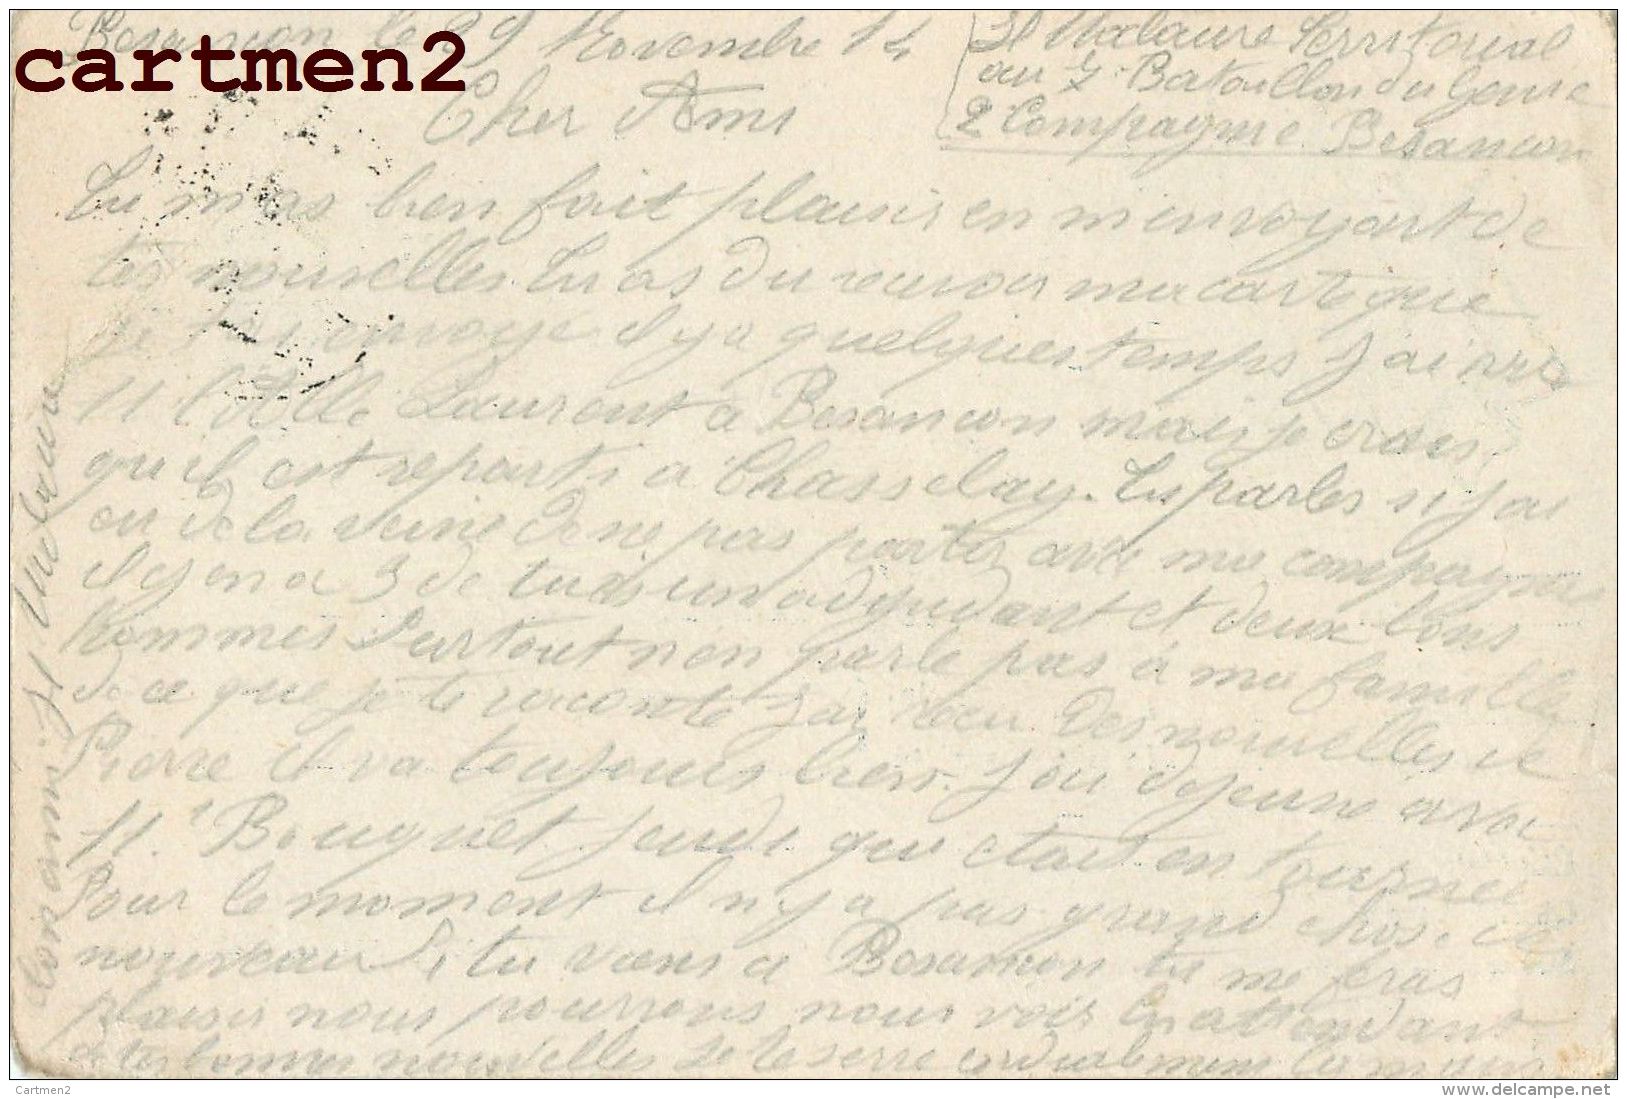 cartmen2
Besançon le 29 Novembre 14
Malaure Territorial
au 7 Bataillon du Genie
2 Compagnie Besancon
Cher Ami
Tu m'as bien fait plaisir en m'envoyant de
tes nouvelles Tu as du recevoir ma carte que
je t'ai envoye il y a quelques temps J'ai
Laurent a Besancon mais je crois
qu'il est reparti a Chasselay. Tu parles si j'ai
eu de la veine de ne pas partir avec ma compagnie
il y en a 3 de tues un adjudant et deux bons
hommes Surtout n'en parle pas a ma famille
de ce que je te raconte J'ai recu des nouvelles de
Pierre il va toujours bien. J'ai dejeune avec
Mr Bouquet jeudi qui etait en tournee
Pour le moment il n'y a pas grand chose de
nouveau Si tu viens a Besancon tu me feras
plaisir nous pourrons nous voir En attendant
de tes bonnes nouvelles Je te serre cordialement la main
Ton ami Malaure
Cartmen2
www.delcampe.net